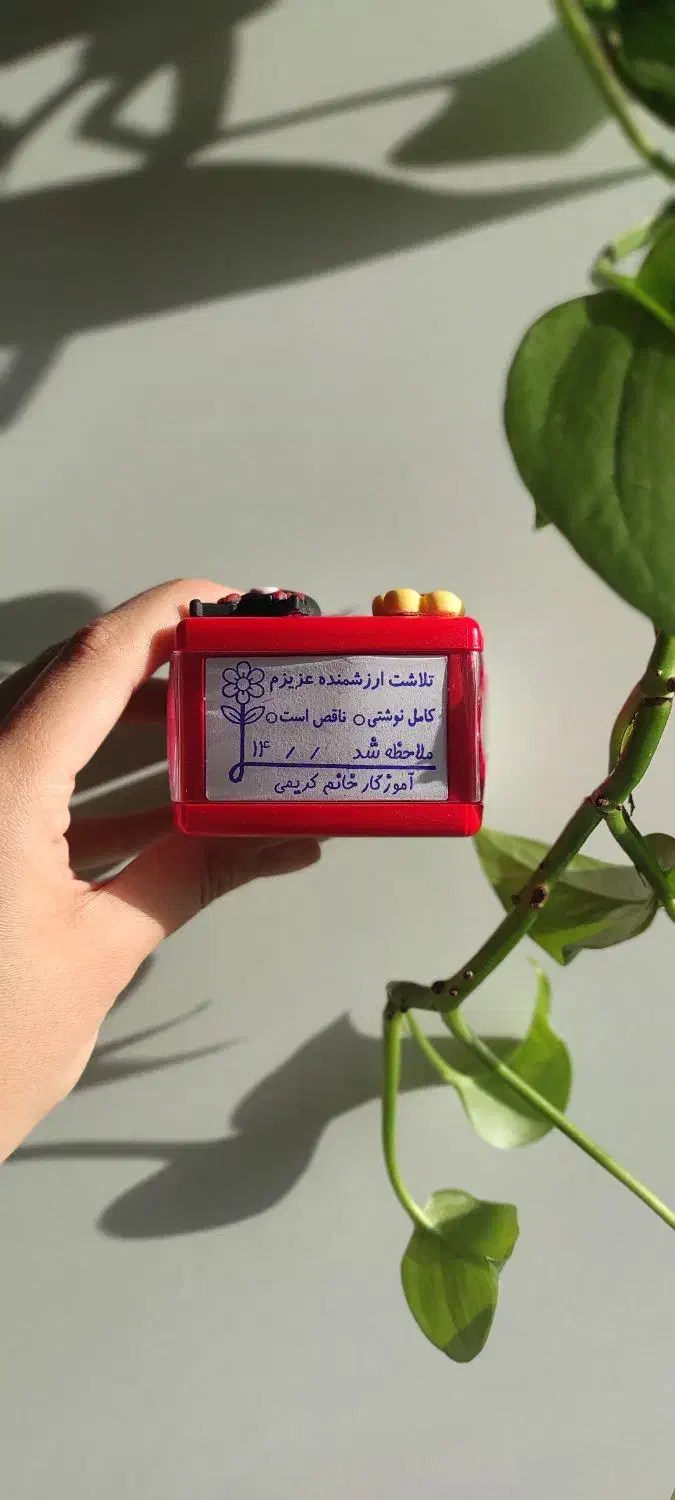 تلاشت ارزشمنده عزیزم
کامل نوشتی○ ناقص است○
ملاحظه شد / / ۱۴
آموزگار خانم کریمی